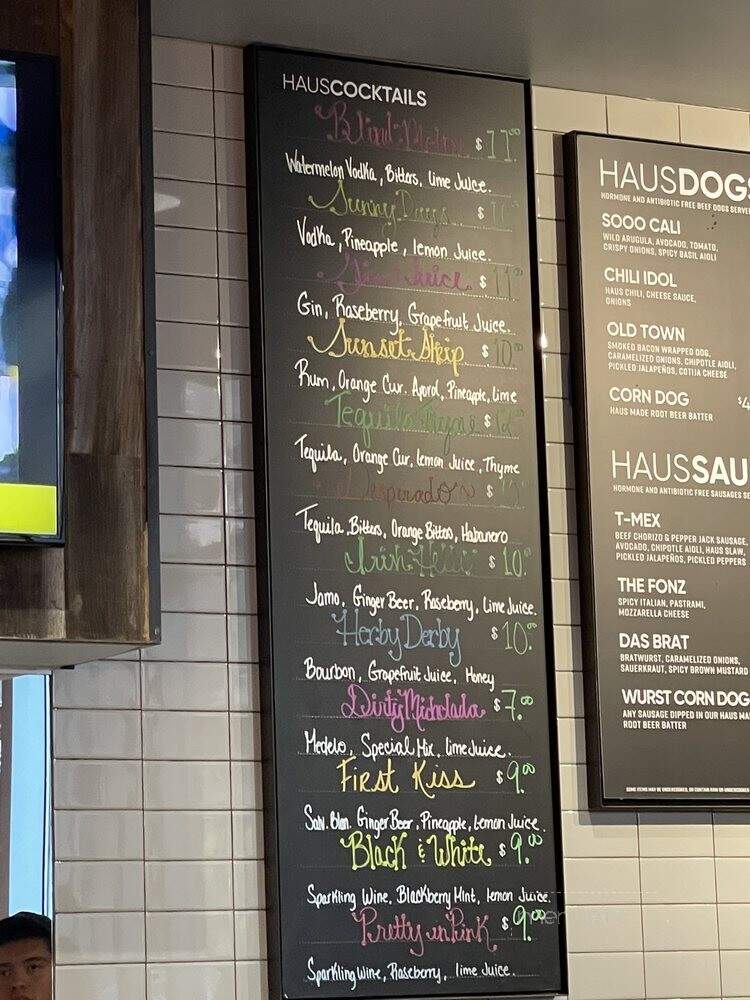 HAUSCOCKTAILS
Blind Melon $11.00
Watermelon Vodka, Bitters, Lime Juice.
Sunny Days $
Vodka, Pineapple, Lemon Juice.
Juice $11.00
Gin, Raseberry, Grapefruit Juice.
Sunset Strip $10.00
Rum, Orange Cur. Aporol, Pineapple, Lime
Tequila Thyme $12.00
Tequila, Orange Cur, Lemon Juice, Thyme
Desperado $
Tequila, Bitters, Orange Bitters, Habanero
Irish Hello $10.
Jamo, Ginger Beer, Raseberry, Lime Juice.
Herby Derby $10.00
Bourbon, Grapefruit Juice, Honey
Dirty Michelada $7.00
Modelo, Special Mix, Lime Juice.
First Kiss $9.00
Sauv. Blan. Ginger Beer, Pineapple, Lemon Juice.
Black & White $9.00
Sparkling Wine, Blackberry Mint, Lemon Juice.
Pretty in Pink $9.00
Sparkling Wine, Raseberry, Lime Juice.
HAUSDOGS
HORMONE AND ANTIBIOTIC FREE BEEF DOGS SERVE
SOOO CALI
WILD ARUGULA, AVOCADO, TOMATO,
CRISPY ONIONS, SPICY BASIL AIOLI
CHILI IDOL
HAUS CHILI, CHEESE SAUCE,
ONIONS
OLD TOWN
SMOKED BACON WRAPPED DOG,
CARAMELIZED ONIONS, CHIPOTLE AIOLI,
PICKLED JALAPEÑOS, COTIJA CHEESE
CORN DOG $4
HAUS MADE ROOT BEER BATTER
HAUSSAU
HORMONE AND ANTIBIOTIC FREE SAUSAGES SE
T-MEX
BEEF CHORIZO & PEPPER JACK SAUSAGE,
AVOCADO, CHIPOTLE AIOLI, HAUS SLAW,
PICKLED JALAPEÑOS, PICKLED PEPPERS
THE FONZ
SPICY ITALIAN, PASTRAMI,
MOZZARELLA CHEESE
DAS BRAT
BRATWURST, CARAMELIZED ONIONS,
SAUERKRAUT, SPICY BROWN MUSTARD
WURST CORN DOG
ANY SAUSAGE DIPPED IN OUR HAUS MA
ROOT BEER BATTER
SOME ITEMS MAY BE UNDERCOOKED, OR CONTAIN RAW OR UNDERCOOKED